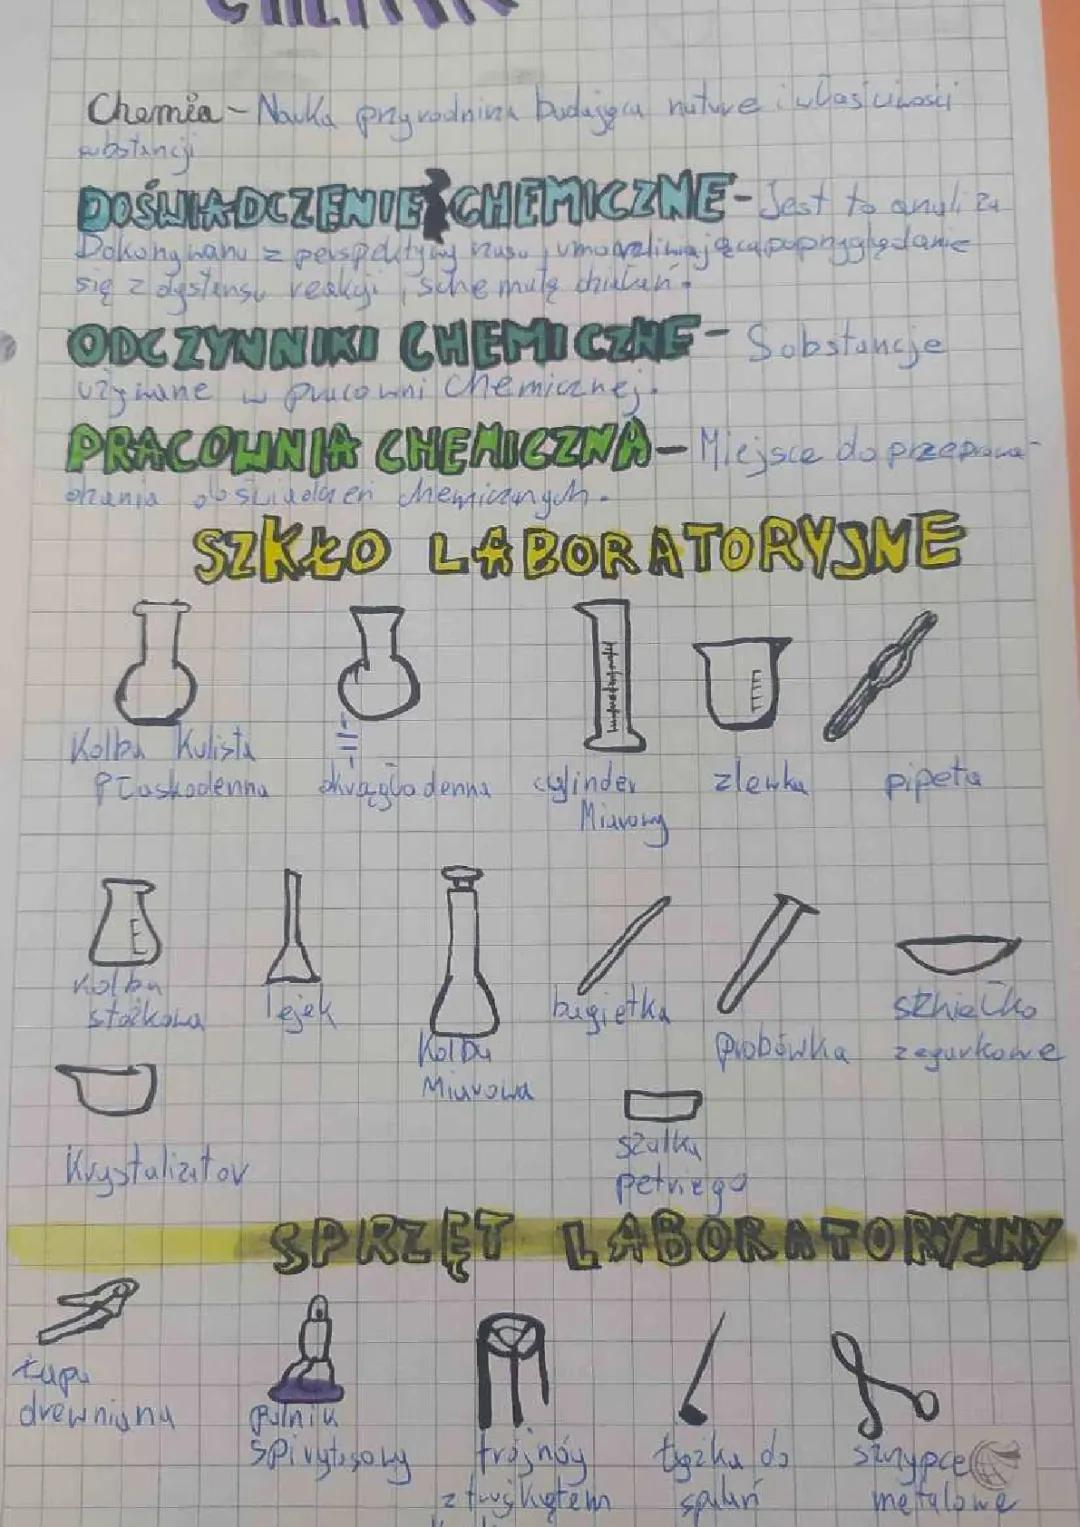 CHEMIA
Chemia - Nauka przyrodnicza badająca nature i właściwości
substancji
DOŚWIADCZENIE CHEMICZNE - Jest to analiza
Dokonywana z perspektywy czasu, umożliwiająca poprzyglądanie
się z dystansu reakcji, schematę działań.
ODCZYNNIKI CHEMICZNE - Substancje
używane w pracowni chemicznej.
PRACOWNIA CHEMICZNA - Miejsce do przeprowa-
dzania doświadczeń chemicznych.
SZKŁO LABORATORYJNE
Kolba Kulista
płaskodenna
okrągłodenna
cylinder
Miarowy
zlewka
pipeta
kolba
stożkowa
lejek
Kolba
Miarowa
bagietka
probówka
szkiełko
zegarkowe
Krystalizator
szalka
petriego
SPRZĘT LABORATORYJNY
Łapa
drewniana
palnik
spirytusowy
trójnóg
z trójkątem
łyżka do
spalań
szczypce
metalowe